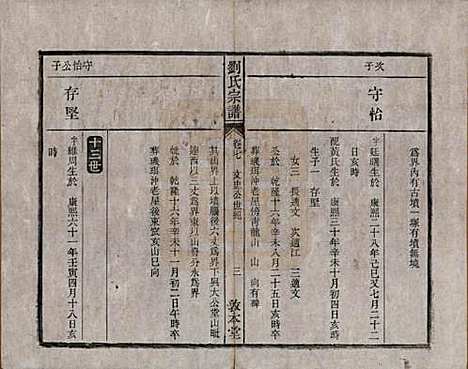 為界內有古墳一塚有墳無境
次子
守怡
字廷曙生於　康熙二十八年己巳又七月二十二
日亥時
配黃氏生於　康熙三十年辛未十月初四日亥
生子一　存堅
女三　長適文　次適江　三適文
公於　乾隆十六年辛未八月二十五日亥時卒
葬磯珥沖老屋傍青龍山　山　向有碑
劉氏宗譜
卷七　文史公世紀　三
敦本堂
其山界上以墳腦後六丈為界下與大公堂山毗
連西以三丈為界東以山發分水為界
氏於　乾隆十六年辛未十一月初二日午時卒
葬磯珥沖老屋後東窊亥山巳向
十三世
守怡公子
存堅
字維周生於　康熙六十一年壬寅四月十八日亥
時